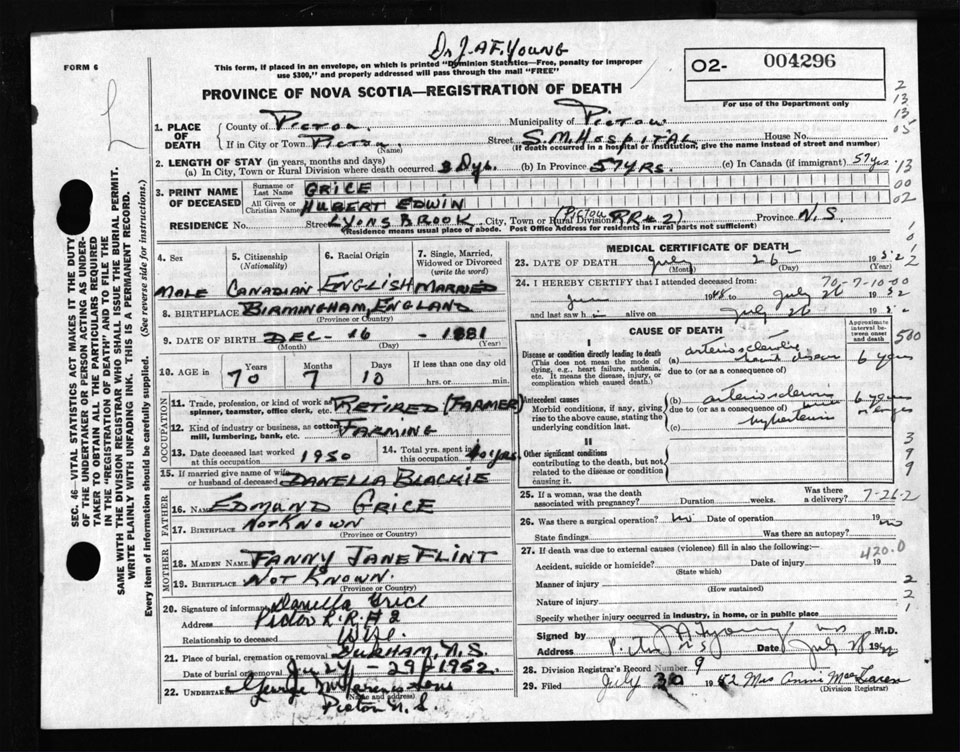 Dr J. A F. Young
FORM 6
This form, if placed in an envelope, on which is printed "Dominion Statistics—Free, penalty for improper
use $300," and properly addressed will pass through the mail "FREE"
O2- 004296
For use of the Department only
PROVINCE OF NOVA SCOTIA—REGISTRATION OF DEATH
2
13
13
05
13
00
02
1. PLACE OF DEATH
County of Pictou. Municipality of Pictou
If in City or Town Pictou. (Name) Street S.M. Hospital House No.
(If death occurred in a hospital or institution, give the name instead of street and number)
2. LENGTH OF STAY (in years, months and days)
(a) In City, Town or Rural Division where death occurred 3 Dys. (b) In Province 57 Yrs. (c) In Canada (if immigrant) 57 yrs.
3. PRINT NAME OF DECEASED
Surname or Last Name GRICE
All Given or Christian Names HUBERT EDWIN
RESIDENCE No. Street LYONS BROOK City, Town or Rural Division (PICTOU RR#2) Province N.S.
(Residence means usual place of abode. Post Office Address for residents in rural parts not sufficient)
SEC. 46—VITAL STATISTICS ACT MAKES IT THE DUTY
OF THE UNDERTAKER OR PERSON ACTING AS UNDER-
TAKER TO OBTAIN ALL THE PARTICULARS REQUIRED
IN THE "REGISTRATION OF DEATH" AND TO FILE THE
SAME WITH THE DIVISION REGISTRAR WHO SHALL ISSUE THE BURIAL PERMIT.
WRITE PLAINLY WITH UNFADING INK. THIS IS A PERMANENT RECORD.
Every item of information should be carefully supplied. (See reverse side for instructions.)
4. Sex
Male
5. Citizenship (Nationality)
Canadian
6. Racial Origin
English
7. Single, Married, Widowed or Divorced (write the word)
Married
8. BIRTHPLACE Birmingham, England
(Province or Country)
9. DATE OF BIRTH DEC - 16 - 1881
(Month) (Day) (Year)
10. AGE in
Years 70 Months 7 Days 10
If less than one day old
hrs. or min.
OCCUPATION
11. Trade, profession, or kind of work as spinner, teamster, office clerk, etc. Retired (Farmer)
12. Kind of industry or business, as cotton mill, lumbering, bank, etc. Farming
13. Date deceased last worked at this occupation 1950
14. Total yrs. spent in this occupation 40 yrs.
15. If married give name of wife or husband of deceased Danella Blackie
FATHER
16. Name Edmund Grice
17. Birthplace Not Known
(Province or Country)
MOTHER
18. Maiden Name Fanny Jane Flint
19. Birthplace Not Known.
(Province or Country)
20. Signature of informant Danella Grice
Address Pictou R.R # 2
Relationship to deceased Wife.
21. Place of burial, cremation or removal Durham, N.S.
Date of burial or removal July - 29 - 1952.
22. Undertaker George
(Name and address)
Pictou N.S.
MEDICAL CERTIFICATE OF DEATH
23. DATE OF DEATH July 26 1952
(Month) (Day)
24. I HEREBY CERTIFY that I attended deceased from: 70-7-10-00
1948 to July 26 1952
and last saw h alive on July 26 19
CAUSE OF DEATH
Approximate interval between onset and death
500
I
Disease or condition directly leading to death
(This does not mean the mode of dying, e.g., heart failure, asthenia, etc. It means the disease, injury, or complication which caused death.)
(a) arteriosclerotic heart disease 6 years
due to (or as a consequence of)
Antecedent causes
Morbid conditions, if any, giving rise to the above cause, stating the underlying condition last.
(b) arteriosclerosis 6 years
due to (or as a consequence of)
(c) hypertension
II
Other significant conditions
contributing to the death, but not related to the disease or condition causing it.
3
9
9
25. If a woman, was the death associated with pregnancy? Duration weeks. Was there a delivery?
7-26-2
26. Was there a surgical operation? no Date of operation 19
State findings Was there an autopsy? no
27. If death was due to external causes (violence) fill in also the following:—
420.0
Accident, suicide or homicide? Date of injury 19
(State which)
Manner of injury
(How sustained)
Nature of injury
2
2
1
Specify whether injury occurred in industry, in home, or in public place
Signed by J A F Young M.D.
Address Pictou N S Date July 28 1952
28. Division Registrar's Record Number 9
29. Filed July 30 1952 Mrs Annie MacLaren
(Division Registrar)